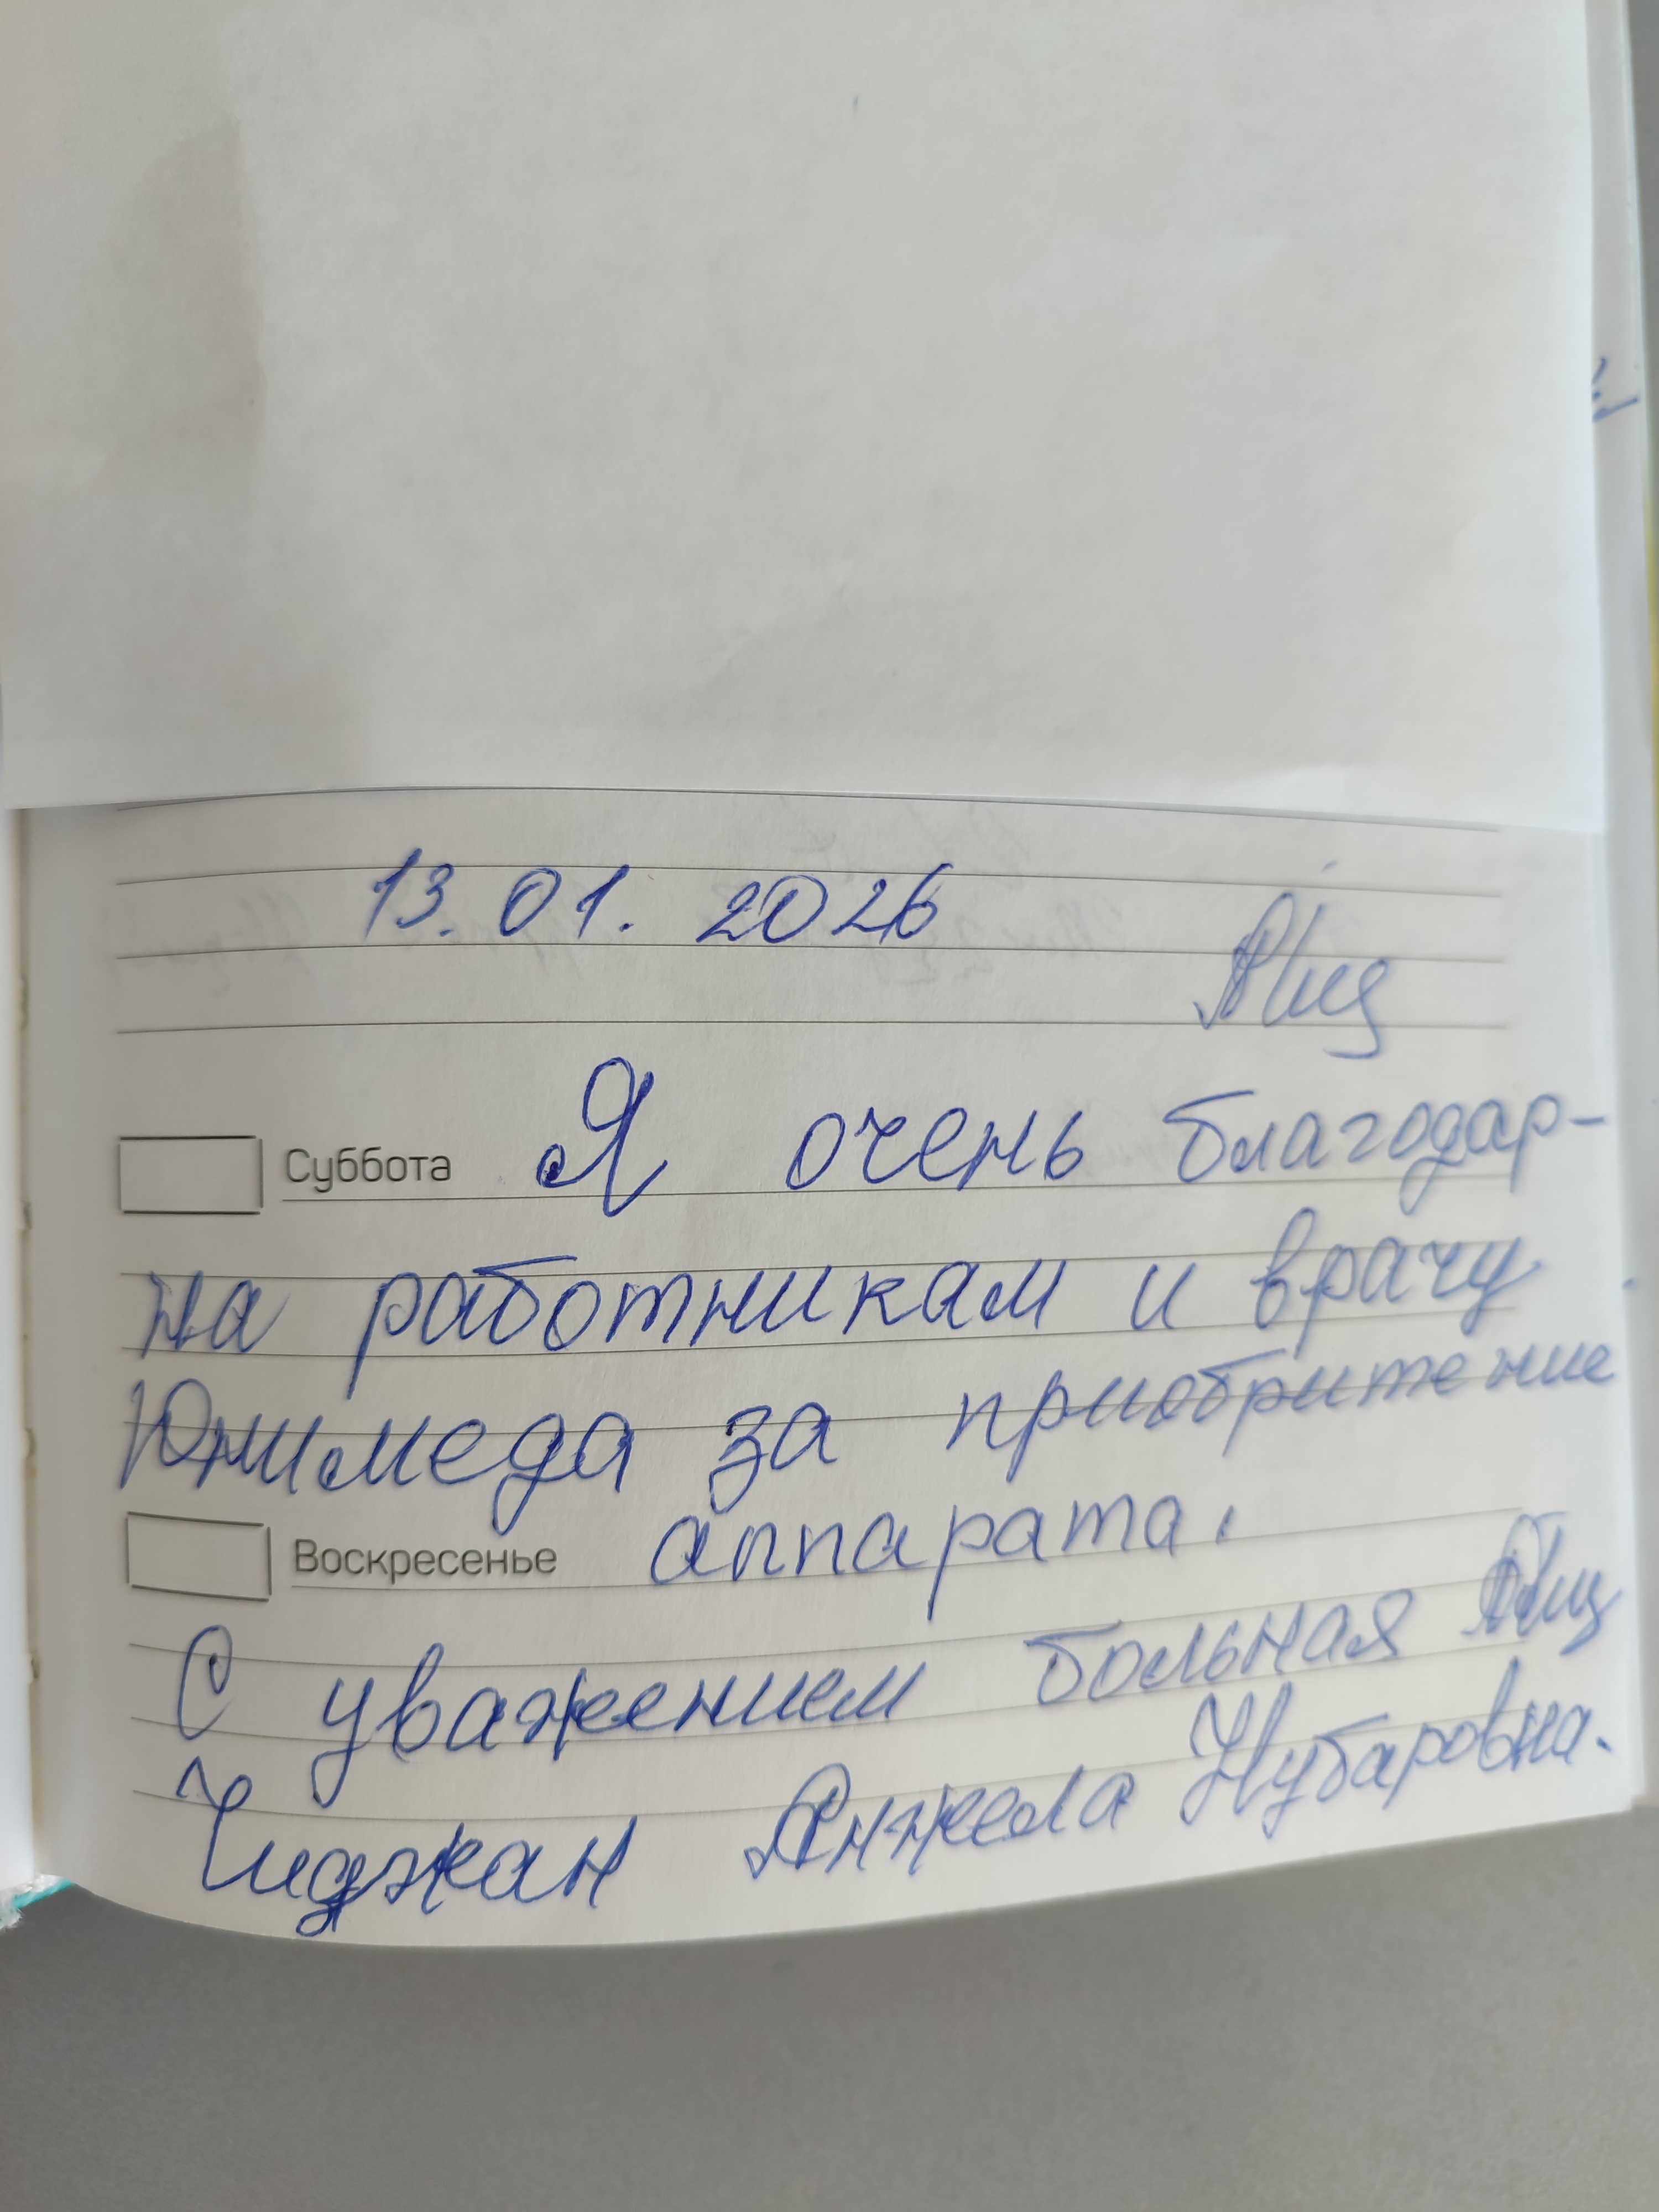 13.01.2026
Суббота Я очень благодар-
на работникам и врачу
Юнимеда за приобритение
Воскресенье аппарата.
С уважением больная
Чиджан Анжела Нубаровна.